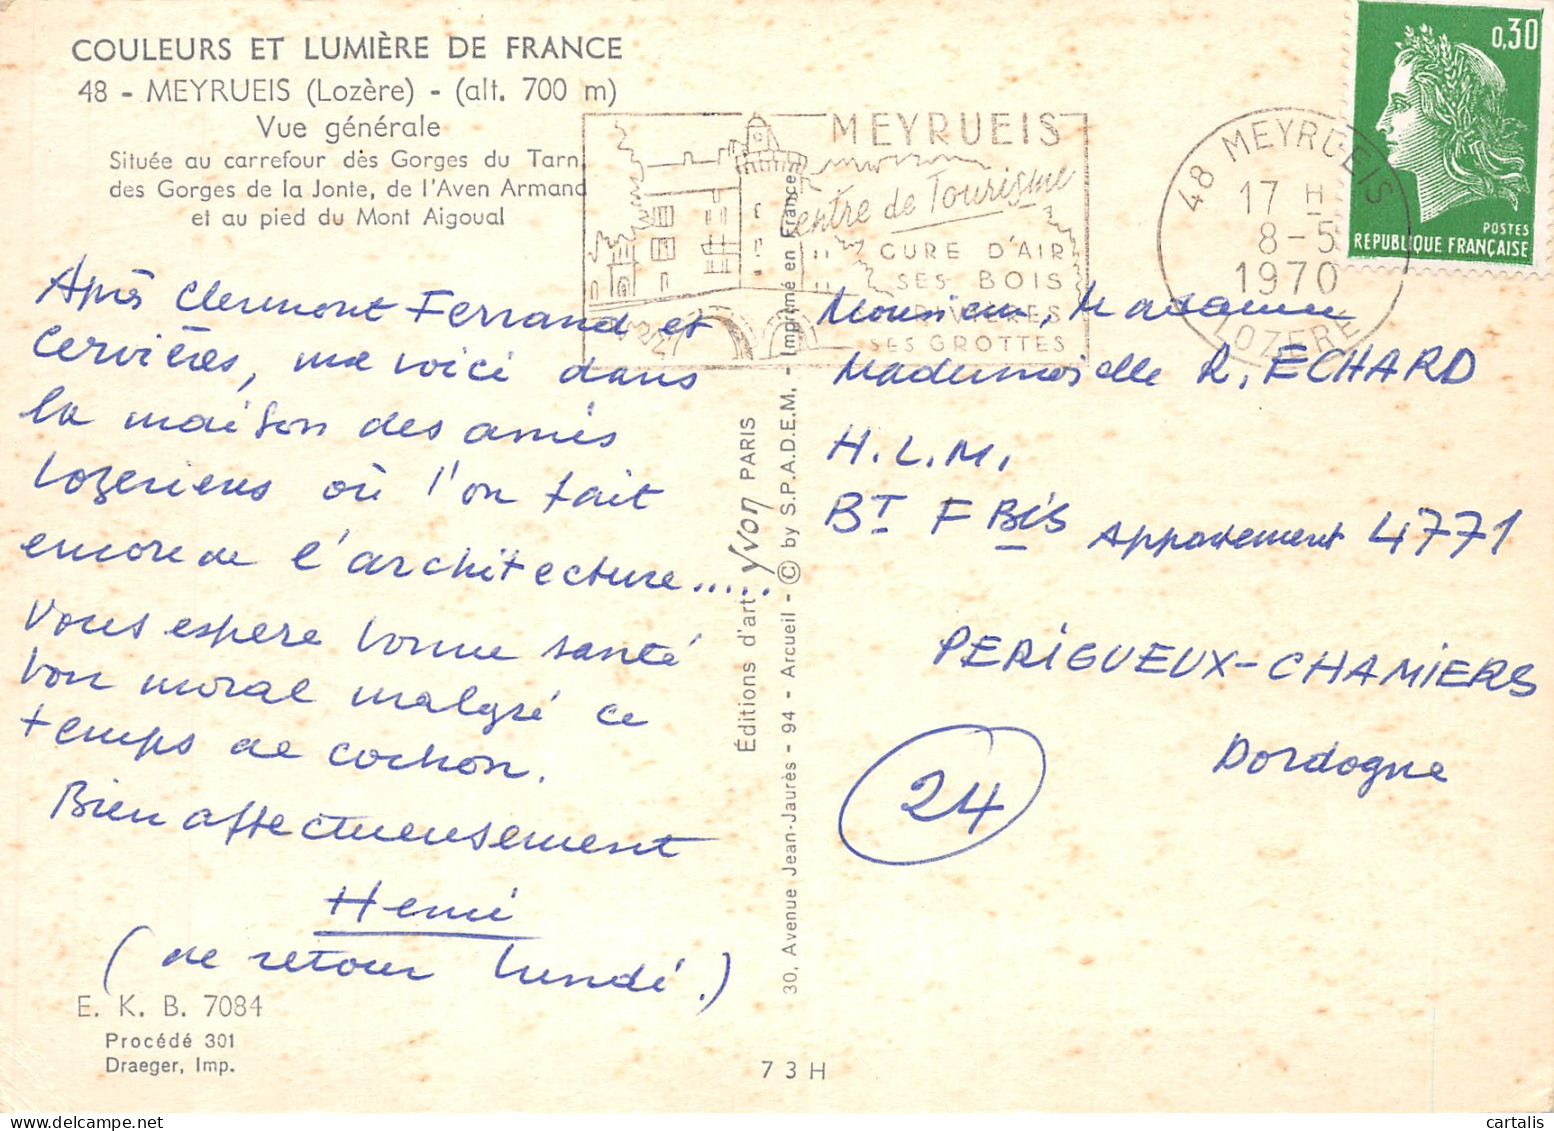 COULEURS ET LUMIÈRE DE FRANCE
48 - MEYRUEIS (Lozère) - (alt. 700 m)
Vue générale
Située au carrefour des Gorges du Tarn,
des Gorges de la Jonte, de l'Aven Armand
et au pied du Mont Aigoual
Après Clermont Ferrand et
Cervières, me voici dans
la maison des amis
Lozeriens où l'on fait
encore de l'architecture.....
Vous espere bonne santé
bon moral malgré ce
temps de cochon.
Bien affectueusement
Henri
(de retour lundi.)
E. K. B. 7084
Procédé 301
Draeger, Imp.
Éditions d'art Yvon PARIS
30, Avenue Jean-Jaurès - 94 - Arcueil - © by S.P.A.D.E.M. - Imprimé en France
7 3 H
MEYRUEIS
Centre de Tourisme
CURE D'AIR
SES BOIS
RIVIÈRES
SES GROTTES
48 MEYRUEIS
17 H
8-5
1970
LOZERE
0,30
POSTES
REPUBLIQUE FRANÇAISE
Monsieur, Madame
Mademoiselle R. ECHARD
H.L.M.
BT F Bis Appartement 4771
PERIGUEUX-CHAMIERS
Dordogne
24
cartalis